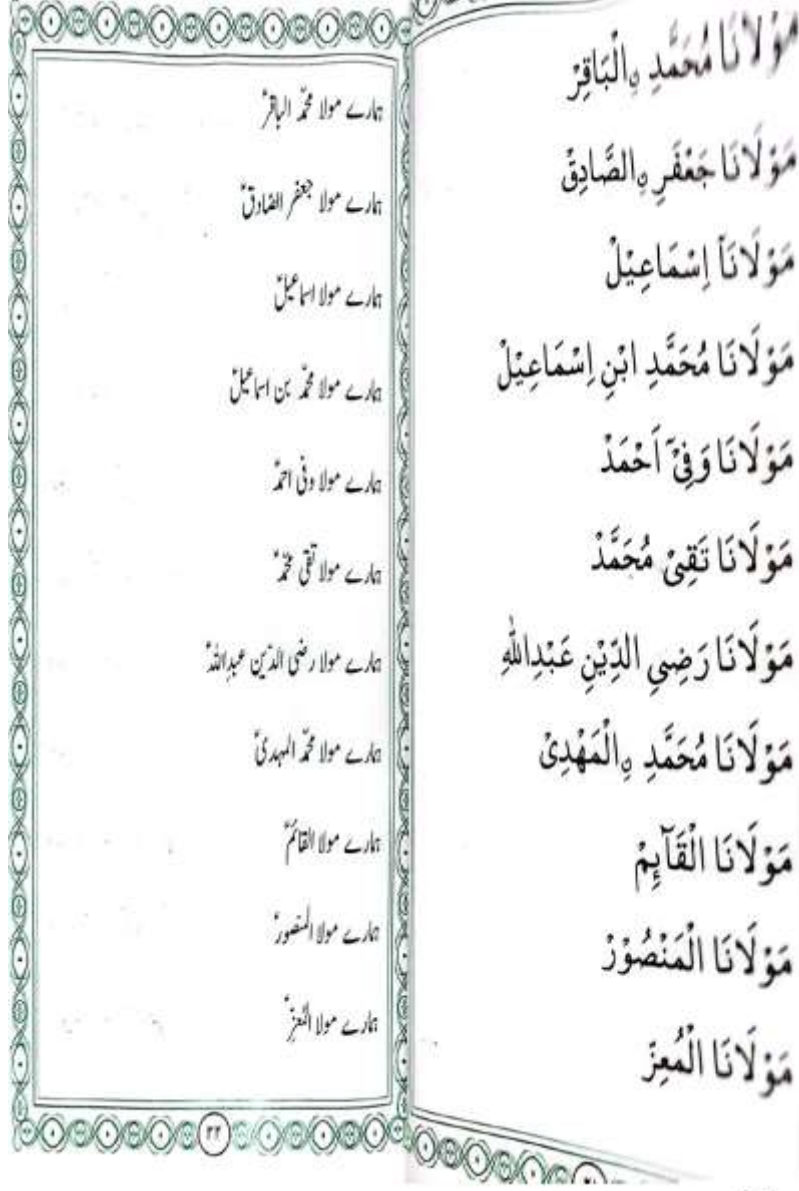 مَوْلَانَا مُحَمَّدِ ۣالْبَاقِرْ
مَوْلَانَا جَعْفَرِ ۣالصَّادِقْ
مَوْلَانَاۤ اِسْمَاعِيْلْ
مَوْلَانَا مُحَمَّدِ ابْنِ اِسْمَاعِيْلْ
مَوْلَانَا وَفِيْٓ اَحْمَدْ
مَوْلَانَا تَقِيْ مُحَمَّدْ
مَوْلَانَا رَضِيِ الدِّيْنِ عَبْدِاللّٰهِ
مَوْلَانَا مُحَمَّدِ ۣالْمَهْدِيْ
مَوْلَانَا الْقَآئِمْ
مَوْلَانَا الْمَنْصُوْرْ
مَوْلَانَا الْمُعِزّ
ہمارے مولا محمّد الباقرؑ
ہمارے مولا جعفر الصّادقؑ
ہمارے مولا اسماعیلؑ
ہمارے مولا محمّد بن اسماعیلؑ
ہمارے مولا وفی احمدؑ
ہمارے مولا تقی محمّدؑ
ہمارے مولا رضی الدّین عبداللہؑ
ہمارے مولا محمّد المہدیؑ
ہمارے مولا القائمؑ
ہمارے مولا المنصورؑ
ہمارے مولا المُعِزّؑ
۲۲